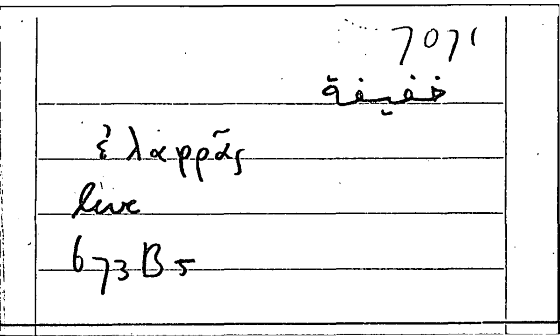 7071
خفيفة
ἐλαφρᾶς
live
673B5